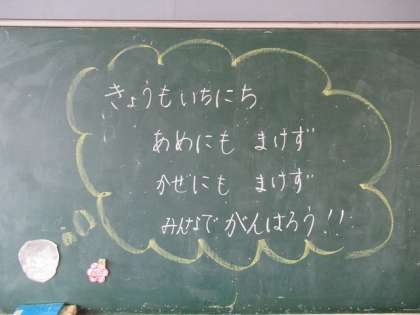 きょうもいちにち
あめにも まけず
かぜにも まけず
みんなで がんばろう!!